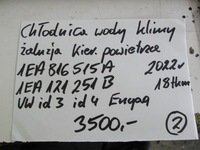 Chłodnica wody klimy
żaluzja kier. powietrza
1EA 816 515 A 2022r
1EA 121 251 B 18 tkm
VW id 3 id 4 Enyaq
3500,-
2